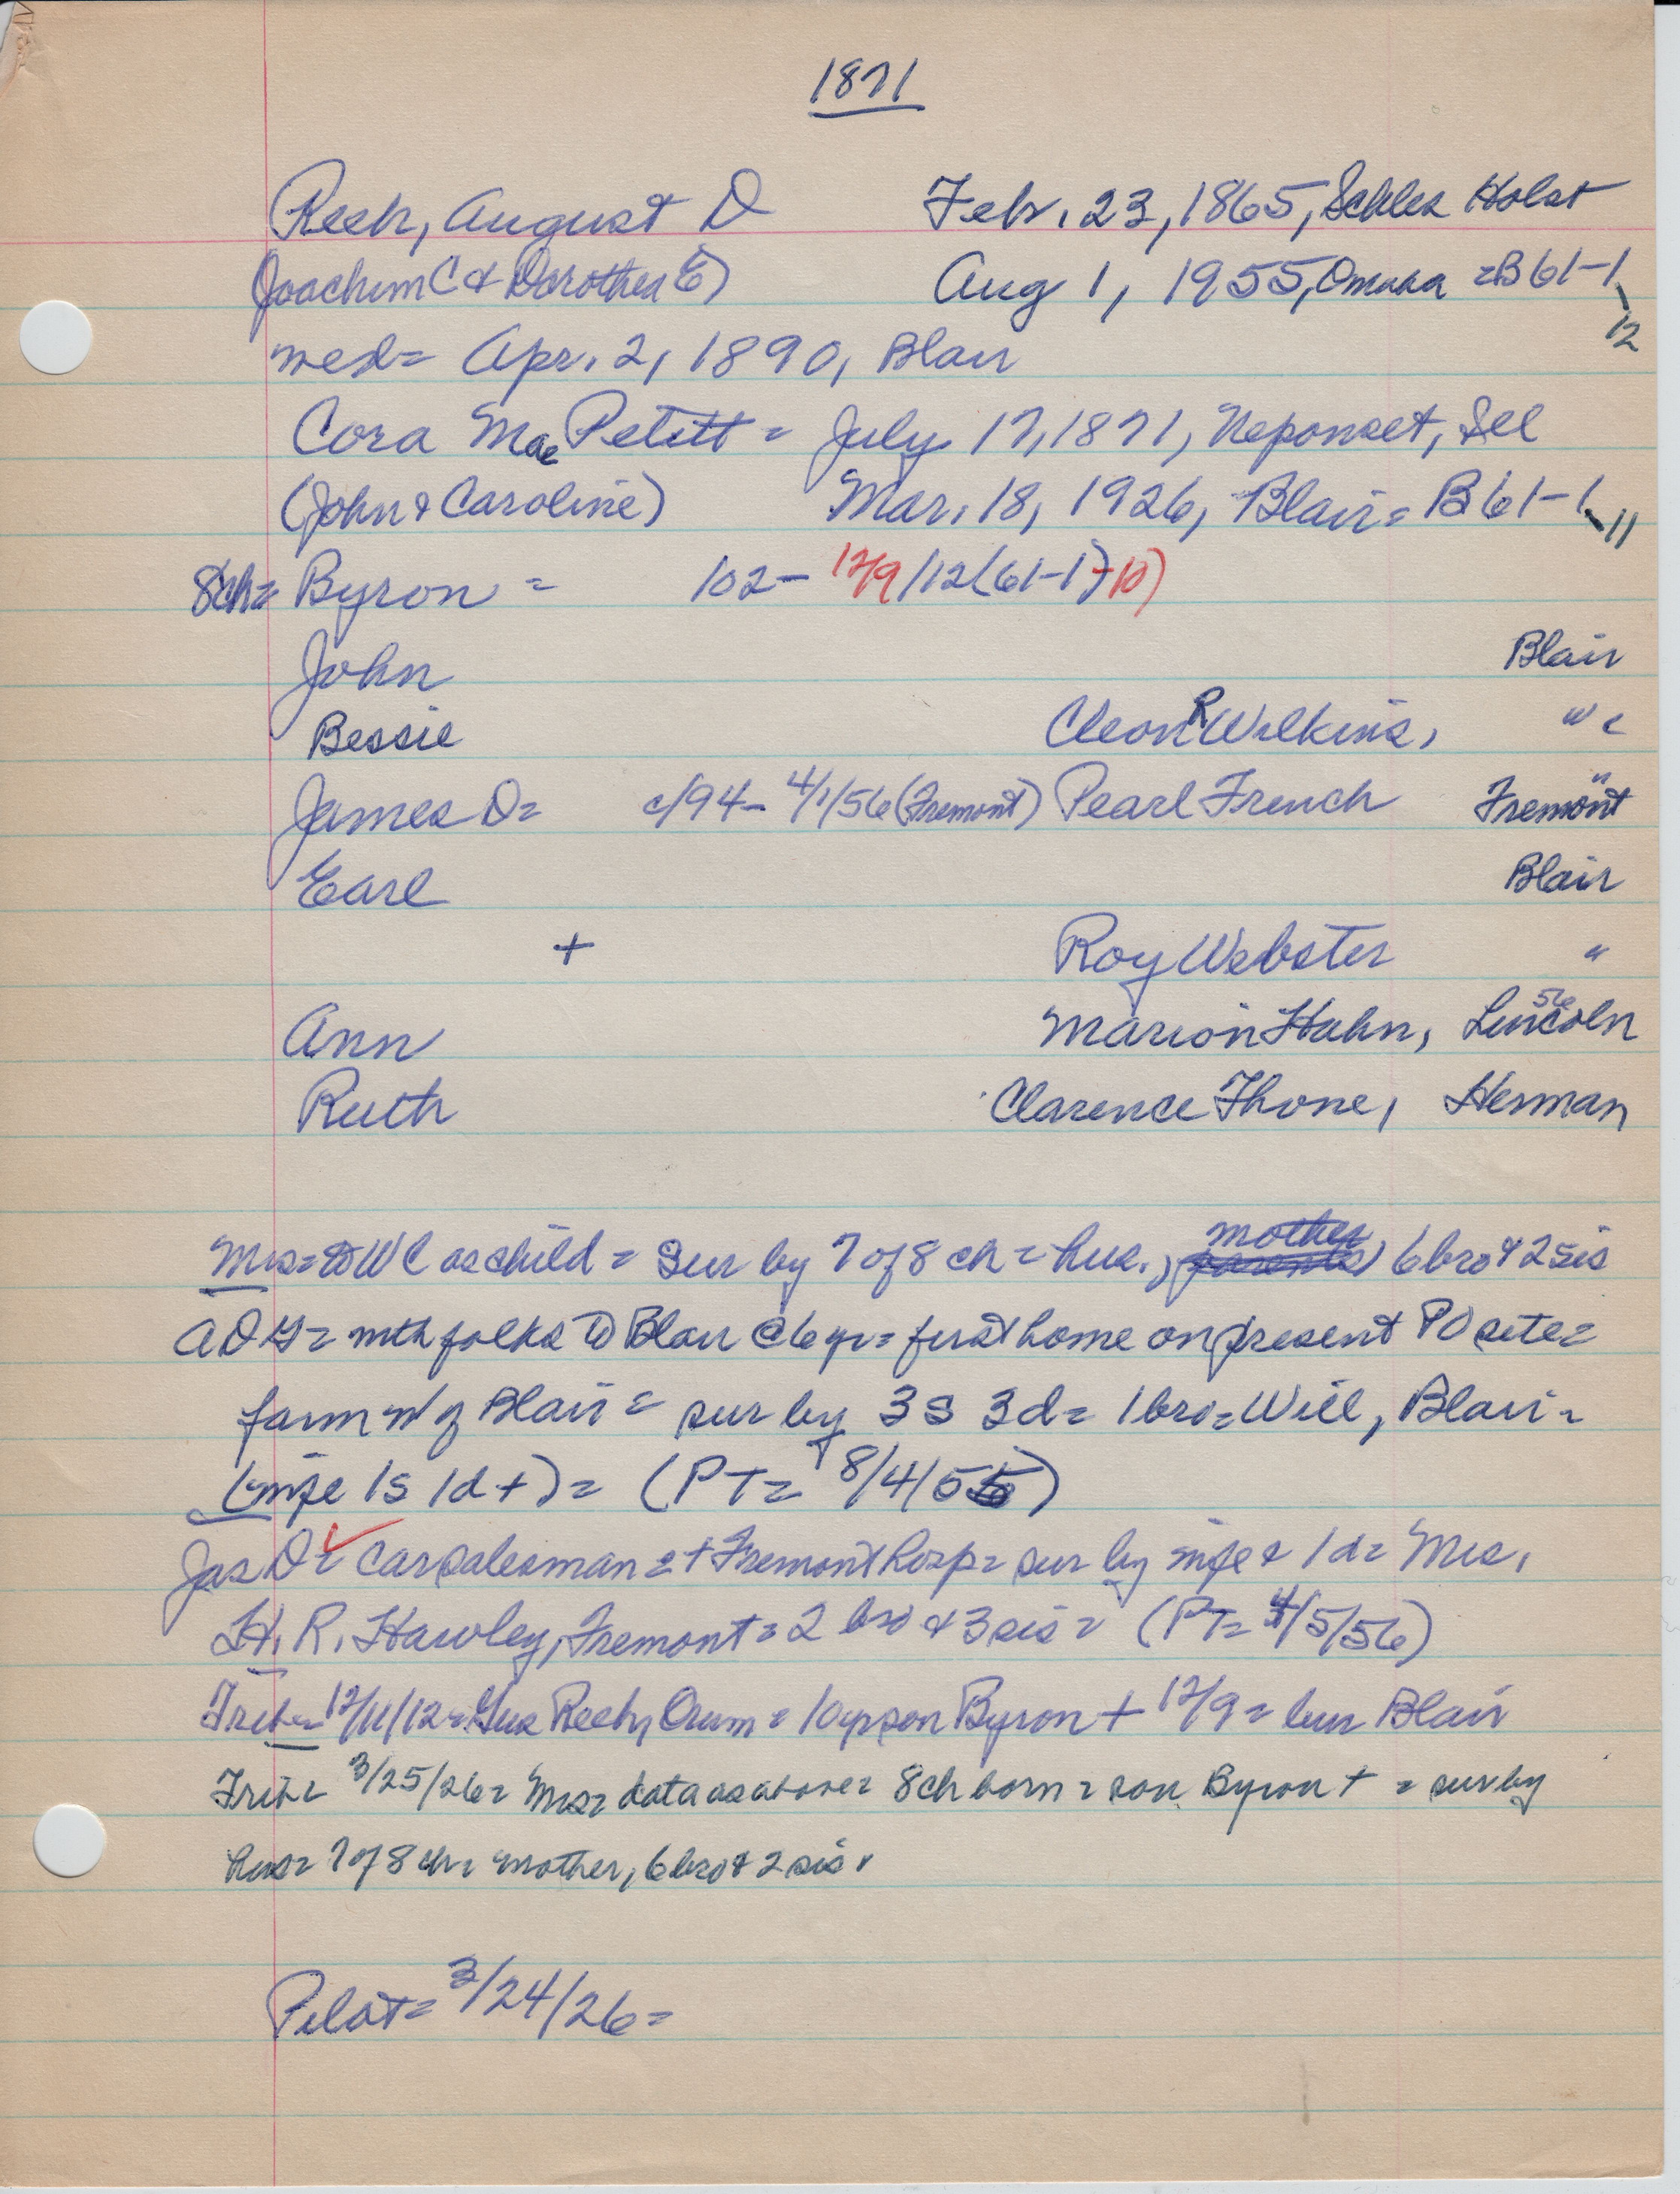 1871
Reeh, August D Febr. 23, 1865, Schles Holst
(Joachim C & Dorothea E) Aug 1, 1955, Omaha = B 61-1-12
med= Apr. 2, 1890, Blair
Cora Mae Petitt = July 17, 1871, Neponset, Ill
(John & Caroline) Mar. 18, 1926, Blair= B 61-1-11
8ch= Byron = 102- 12/9/12 (61-1)-10)
John Blair
Bessie Cleon R Wilkins, WC
James D= c/94- 4/1/56 (Fremont) Pearl French " Fremont
Earl Blair
+ Roy Webster "
Ann Marion Hahn, 56 Lincoln
Ruth Clarence Thone, Herman
Mrs= to WC as child = Sur by 7 of 8 ch = hus., mother, 6 bro & 2 sis
AD = with folks to Blair @ 6 yr= first home on present PO site=
farm of Blair = sur by 3 s 3 d= 1 bro= Will, Blair=
(wife 1s 1d +) = (PT= 8/4/55)
Jas D= Car salesman = + Fremont hosp= sur by wife & 1 d= Mrs.
H. R. Hawley, Fremont= 2 bro & 3 sis= (PT= 4/5/56)
Trib= 12/11/12= Gus Reeh, Orum= 10 yr son Byron + 12/9= bur Blair
Trib= 3/25/26= Mrs= data as above= 8 ch born= son Byron + = sur by
hus= 7 of 8 ch= mother, 6 bro & 2 sis.
Pilot= 3/24/26=